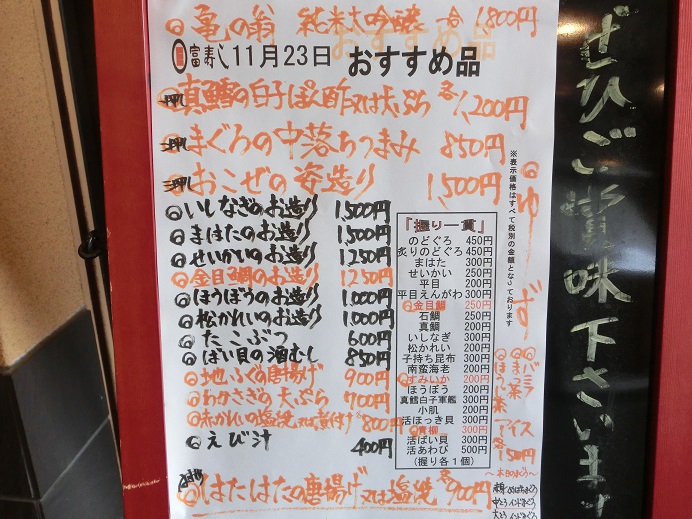 ◎亀の翁 純米大吟醸 一合 1800円
富寿し 11月23日 おすすめ品
押し 真鱈の白子ぽん酢又は天ぷら 各1,200円
押し まぐろの中落ちつまみ 850円
押し おこぜの姿造り 1,500円
◎いしなぎのお造り 1,500円
◎まはたのお造り 1,500円
◎せいかいのお造り 1250円
◎金目鯛のお造り 1250円
◎ほうぼうのお造り 1,000円
◎松かれいのお造り 1,000円
◎たこぶつ 600円
◎ばい貝の酒むし 850円
◎地ふぐの唐揚げ 900円
◎わかさぎの天ぷら 700円
◎赤かれいの塩焼又は煮付け 800円
◎えび汁 400円
◎はたはたの唐揚げ又は塩焼 各900円
「握り一貫」
のどぐろ 450円
炙りのどぐろ 450円
まはた 300円
せいかい 250円
平目 200円
平目えんがわ 300円
◎金目鯛 250円
石鯛 250円
真鯛 200円
いしなぎ 300円
松かれい 200円
子持ち昆布 300円
南蛮海老 200円
◎すみいか 200円
ほうぼう 200円
真鱈白子軍艦 300円
小肌 200円
活ほっき貝 300円
◎青柳 300円
活ばい貝 300円
活あわび 500円
(握り各1個)
※表示価格はすべて税別の金額となっております
◎ゆーず
◎バニラ
◎まっ茶
◎ほうじ茶
アイス
各150円
〜本日のまぐろ〜
ぜひご賞味下さいませ